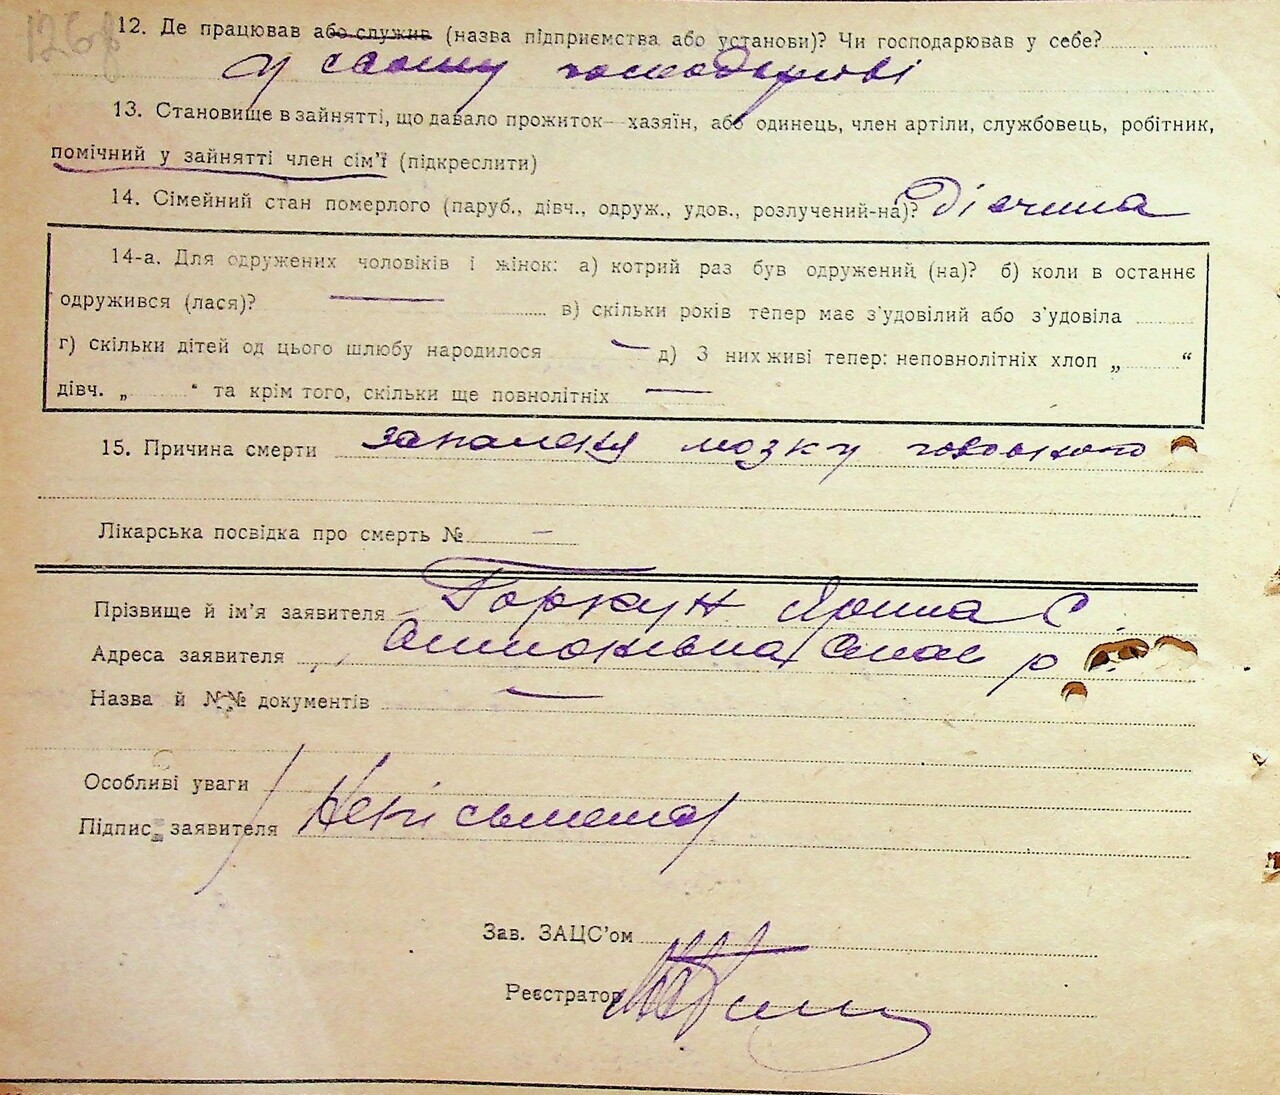 12. Де працював або служив (назва підприємства або установи)? Чи господарював у себе?
у свому господарстві
13. Становище в зайнятті, що давало прожиток—хазяїн, або одинець, член артіли, службовець, робітник,
помічний у зайнятті член сім'ї (підкреслити)
14. Сімейний стан померлого (паруб., дівч., одруж., удов., розлучений-на)? Дівчина
14-а. Для одружених чоловіків і жінок: а) котрий раз був одружений (на)? б) коли в останнє
одружився (лася)? в) скільки років тепер має з'удовілий або з'удовіла
г) скільки дітей од цього шлюбу народилося д) З них живі тепер: неповнолітніх хлоп „ “
дівч. „ “ та крім того, скільки ще повнолітніх
15. Причина смерти запалення мозку головного
Лікарська посвідка про смерть № —
Прізвище й ім'я заявителя Горкун Ярина С
Адреса заявителя р
Назва й №№ документів —
Особливі уваги
Підпис заявителя Неписьмена
Зав. ЗАЦС'ом
Реєстратор